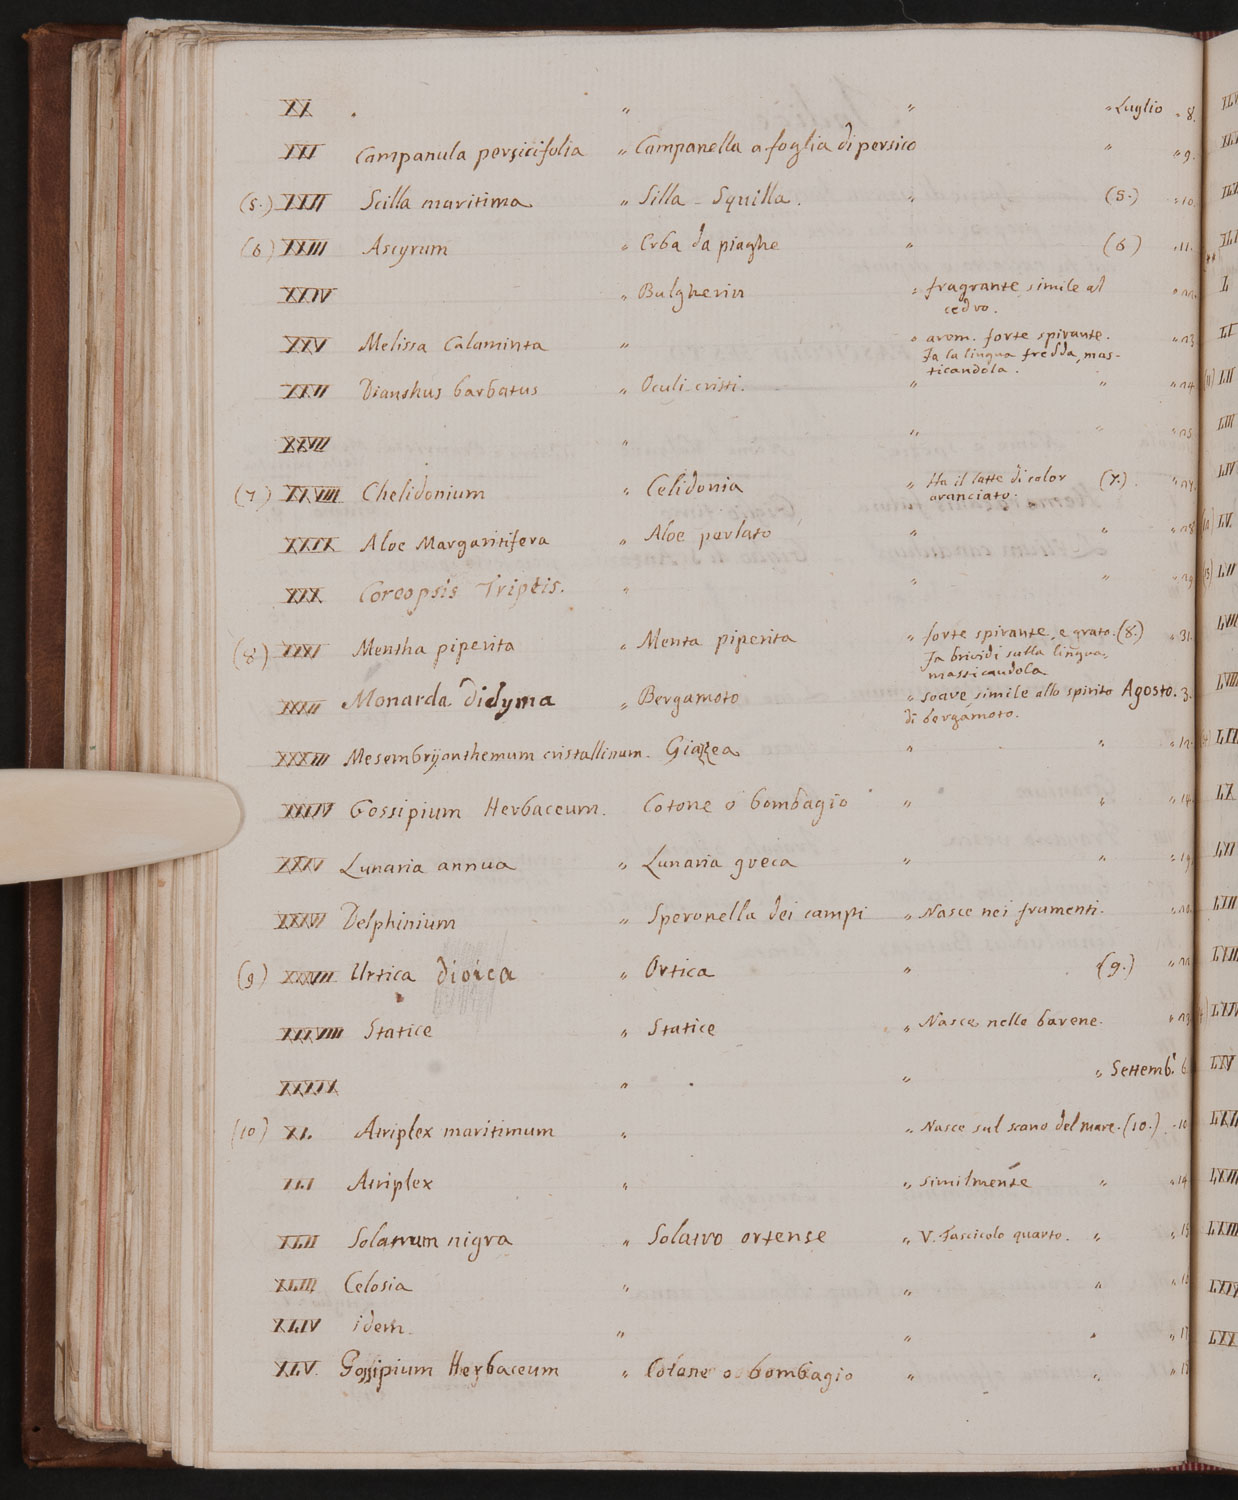 XX . " " " Luglio " 8.
XXI Campanula persicifolia " Campanella a foglia di persico " " 9.
(5.) XXII Scilla maritima " Silla - Squilla. " (5.) " 10
(6) XXIII Ascyrum " Erba da piaghe " (6) " 11.
XXIV " Bulgherin " fragrante simile al " 12.
cedro.
XXV Melissa Calaminta " " arom. forte spirante. " 13
Fa la lingua fredda, mas-
ticandola.
XXVI Dianthus barbatus " Oculi-cristi. " " " 14
XXVII " " " " 15
(7) XXVIII Chelidonium " Celidonia " Ha il latte di color (7.) . " 17.
aranciato.
XXIX Aloe Margaritifera " Aloe perlato " " " 18
XXX Coreopsis Triptis. " " " " 19
(8) XXXI Mentha piperita " Menta piperita " forte spirante, e grato. (8.) " 31.
Fa brividi sulla lingua,
masticandola
XXXII Monarda didyma " Bergamoto " soave simile allo spirito Agosto. 3.
di bergamoto.
XXXIII Mesembrijonthemum cristallinum. Giazzea " " " 12.
XXXIV Gossipium Herbaceum. Cotone o bombagio " " " 14
XXXV Lunaria annua " Lunaria greca " " " 19
XXXVI Delphinium " Speronella dei campi " Nasce nei frumenti. " 20
(9) XXXVII Urtica dioica " Ortica " (9.) " 22
XXXVIII Statice " Statice " Nasce nelle barene. " 23
XXXIX " " " Settemb. 6
(10) XL. Atriplex maritimum " " Nasce sul scano del mare. (10.) " 10
XLI Atriplex " " similmente " " 14
XLII Solanum nigra " Solatro ortense " V. Fascicolo quarto. " " 15
XLIII Celosia " " " "
XLIV idem. " " " " 17
XLV. Gossipium Herbaceum " Cotone o bombagio " " "